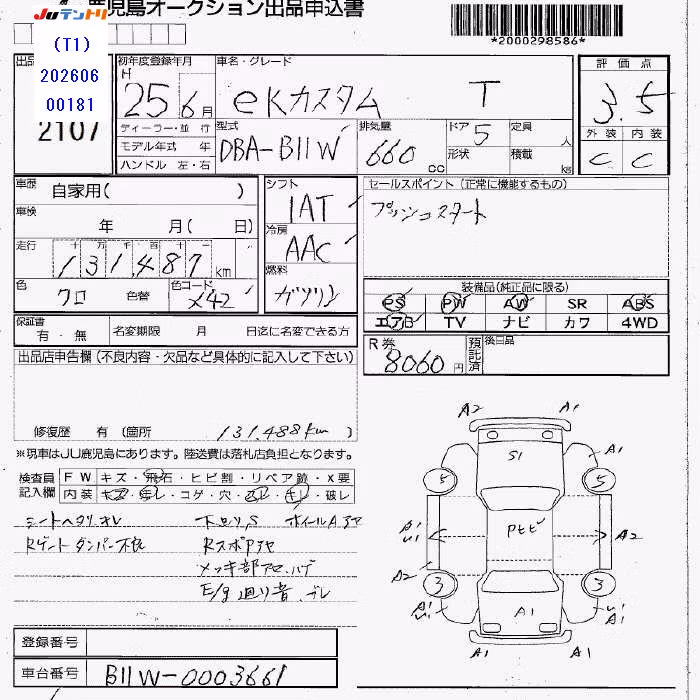 JUテントリ
鹿児島オークション出品申込書
*2000298586*
(T1)
202606
00181
出品
2107
初年度登録年月
H 25年 6月
車名・グレード
eKカスタム T
評価点
3.5
外装 内装
C C
ディーラー・並行
モデル年式 年
ハンドル 左・右
型式
DBA-B11W
排気量
660 cc
ドア 5
形状
定員 人
積載 kg
車歴 自家用( )
車検
年 月( 日)
走行 十 万 千 百 十 一
131,487 km
色 クロ 色替
色コード X42
シフト
IAT
冷房
AAC
燃料
ガソリン
セールスポイント (正常に機能するもの)
プッシュスタート
装備品(純正品に限る)
PS PW AW SR ABS
エアB TV ナビ カワ 4WD
保証書
有・無
名変期限 月 日迄に名変できる方
R券
8060円
預託済
後日品
出品店申告欄 (不良内容・欠品など具体的に記入して下さい)
修復歴 有 (箇所 131.488km )
※現車はJU鹿児島にあります。陸送費は落札店負担となります。
検査員記入欄
FW キズ・飛石・ヒビ割・リペア跡・X要
内装
コゲ・穴
破レ
シートヘタリ.オレ
下回りS
ホイールAアセ
Rゲートダンパー不良
Rスポアセ
メッキ部アセ.ハゲ
E/g廻り音.ブレ
A2 A1
S1
A1
5 5
A1
A2
A2
3 3
A1
A1
A1
A1 A1
登録番号
車台番号 B11W-0003661